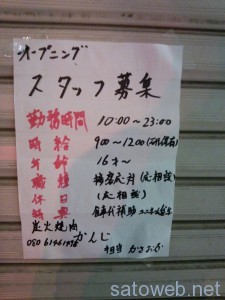 オープニング
スタッフ募集
勤務時間 10:00〜23:00
時給 900〜1200
年齢 16才〜
職種 接客応対(応相談)
休日 (応相談)
特典 食事代補助
炭火焼肉 かんじ
担当
satoweb.net